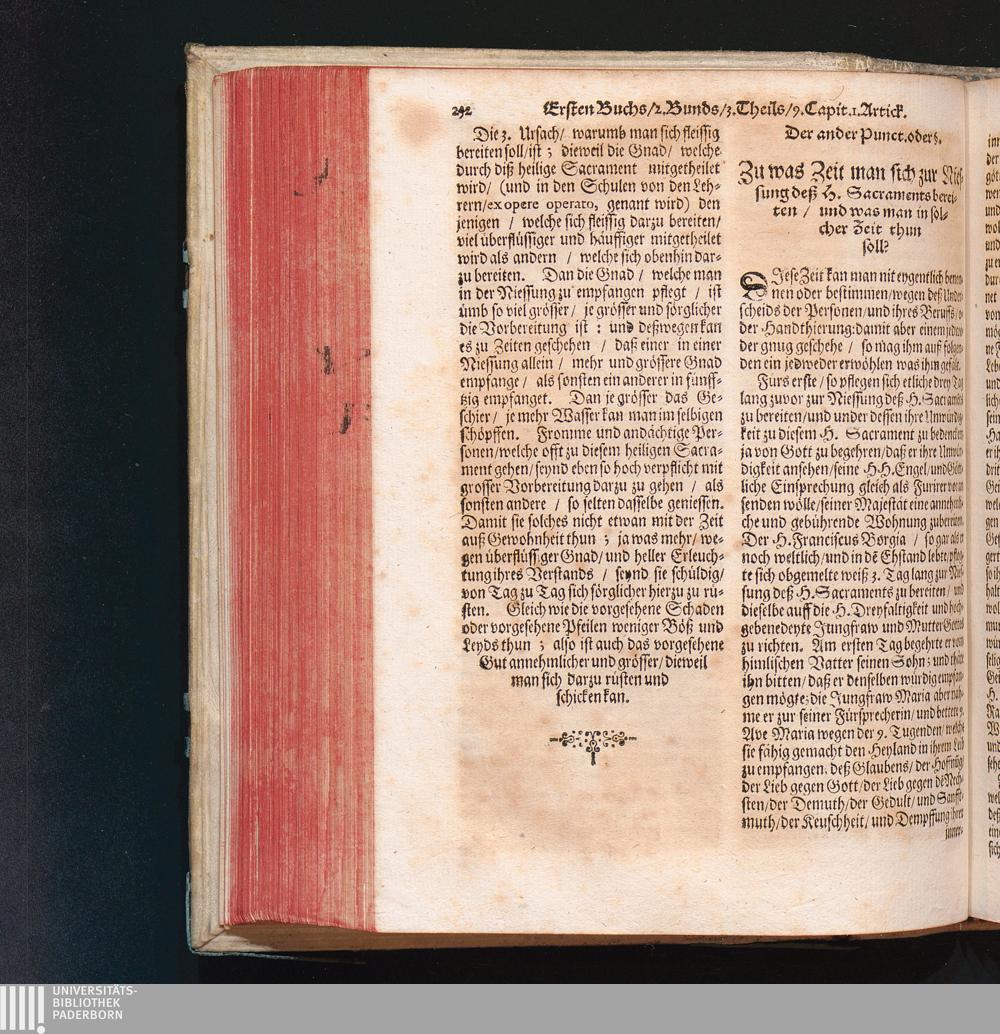 292 Ersten Buchs/2. Bunds/3. Theils/9. Capit. 1. Artick.
Die 3. Ursach/ warumb man sich fleissig
bereiten soll/ist; dieweil die Gnad/ welche
durch diß heilige Sacrament mitgetheilet
wird/ (und in den Schulen von den Leh-
rern/ex opere operato, genant wird) den
jenigen / welche sich fleissig darzu bereiten/
viel überflüssiger und häuffiger mitgetheilet
wird als andern / welche sich obenhin dar-
zu bereiten. Dan die Gnad / welche man
in der Niessung zu empfangen pflegt / ist
umb so viel grösser / je grösser und sörglicher
die Vorbereitung ist : und deßwegen kan
es zu Zeiten geschehen / daß einer in einer
Niessung allein / mehr und grössere Gnad
empfange / als sonsten ein anderer in fünff-
tzig empfanget. Dan je grösser das Ge-
schier / je mehr Wasser kan man im selbigen
schöpffen. Fromme und andächtige Per-
sonen/welche offt zu diesem heiligen Sacra-
ment gehen/ seynd eben so hoch verpflicht mit
grosser Vorbereitung darzu zu gehen / als
sonsten andere / so selten dasselbe geniessen.
Damit sie solches nicht etwan mit der Zeit
auß Gewohnheit thun ; ja was mehr/ we-
gen überflüssiger Gnad/ und heller Erleuch-
tung ihres Verstands / seynd sie schüldig/
von Tag zu Tag sich sörglicher hierzu zu rü-
sten. Gleich wie die vorgesehene Schaden
oder vorgesehene Pfeilen weniger Böß und
Leyds thun ; also ist auch das vorgesehene
Gut annehmlicher und grösser/ dieweil
man sich darzu rüsten und
schicken kan.
Der ander Punct. oder §.
Zu was Zeit man sich zur Nies-
sung deß H. Sacraments berei-
ten / und was man in sol-
cher Zeit thun
soll?
Diese Zeit kan man nit eygentlich
nen oder bestimmen/wegen deß Under-
scheids der Personen/und ihres Beruffs/
der Handthierung: damit aber einem
der gnug geschehe / so mag ihm auß folgen-
den ein jedweder erwöhlen was ihm gefält.
Fürs erste / so pflegen sich etliche drey Tag
lang zuvor zur Niessung deß H. Sacraments
zu bereiten/und under dessen ihre Unwürdig-
keit zu diesem H. Sacrament zu bedencken
ja von Gott zu begehren/daß er ihre Unwür-
digkeit ansehen/seine H.H. Engel/und Gött-
liche Einsprechung gleich als Furirer voran
senden wölle/seiner Majestät eine annehmli-
che und gebührende Wohnung zubereiten.
Der H. Franciscus Borgia / so gar als er
noch weltlich/und in dē Ehstand lebte/pfleg-
te sich obgemelte weiß 3. Tag lang zur Nies-
sung deß H. Sacraments zu bereiten / und
dieselbe auff die H. Dreyfaltigkeit und hoch-
gebenedeyte Jungfraw und Mutter Gottes
zu richten. Am ersten Tag begehrte er vom
himlischen Vatter seinen Sohn; und thäte
ihn bitten/ daß er denselben würdig empfan-
gen mögte; die Jungfraw Maria aber nah-
me er zur seiner Fürsprecherin/ und bettete 9.
Ave Maria wegen der 9. Tugenden/ welche
sie föhig gemacht den Heyland in ihrem Leib
zu empfangen. deß Glaubens/ der Hoffnūg/
der Lieb gegen Gott/der Lieb gegen dē Nech-
sten/der Demuth/der Gedult/ und Sanfft-
muth/der Keuschheit/ und Dempffung ihrer
inner-
UNIVERSITÄTS-
BIBLIOTHEK
PADERBORN